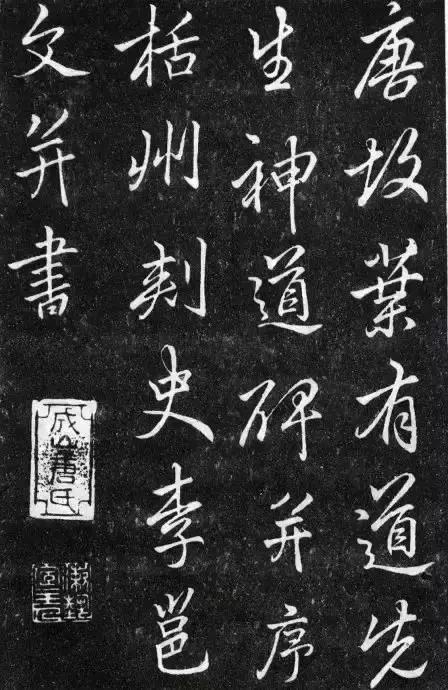 唐故葉有道先
生神道碑并序
括州刾史李邕
文并書